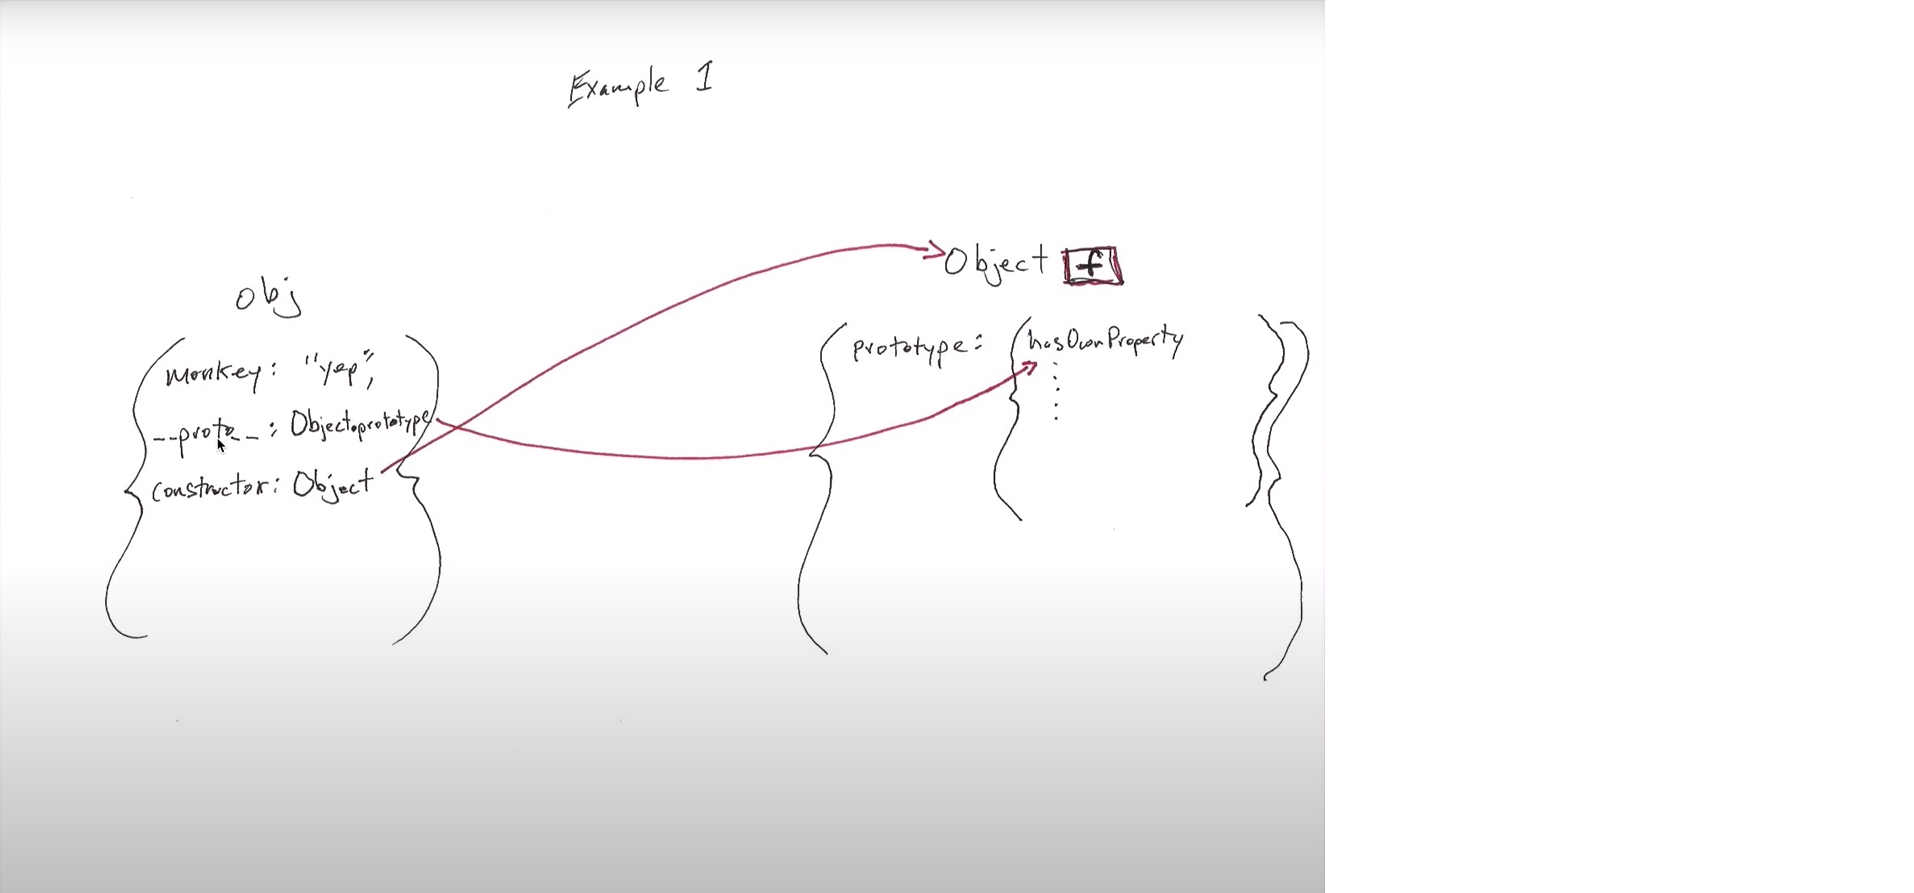 Example 1
obj
monkey: "yep",
__proto__: Object.prototype
constructor: Object
Object f
prototype: {hasOwnProperty